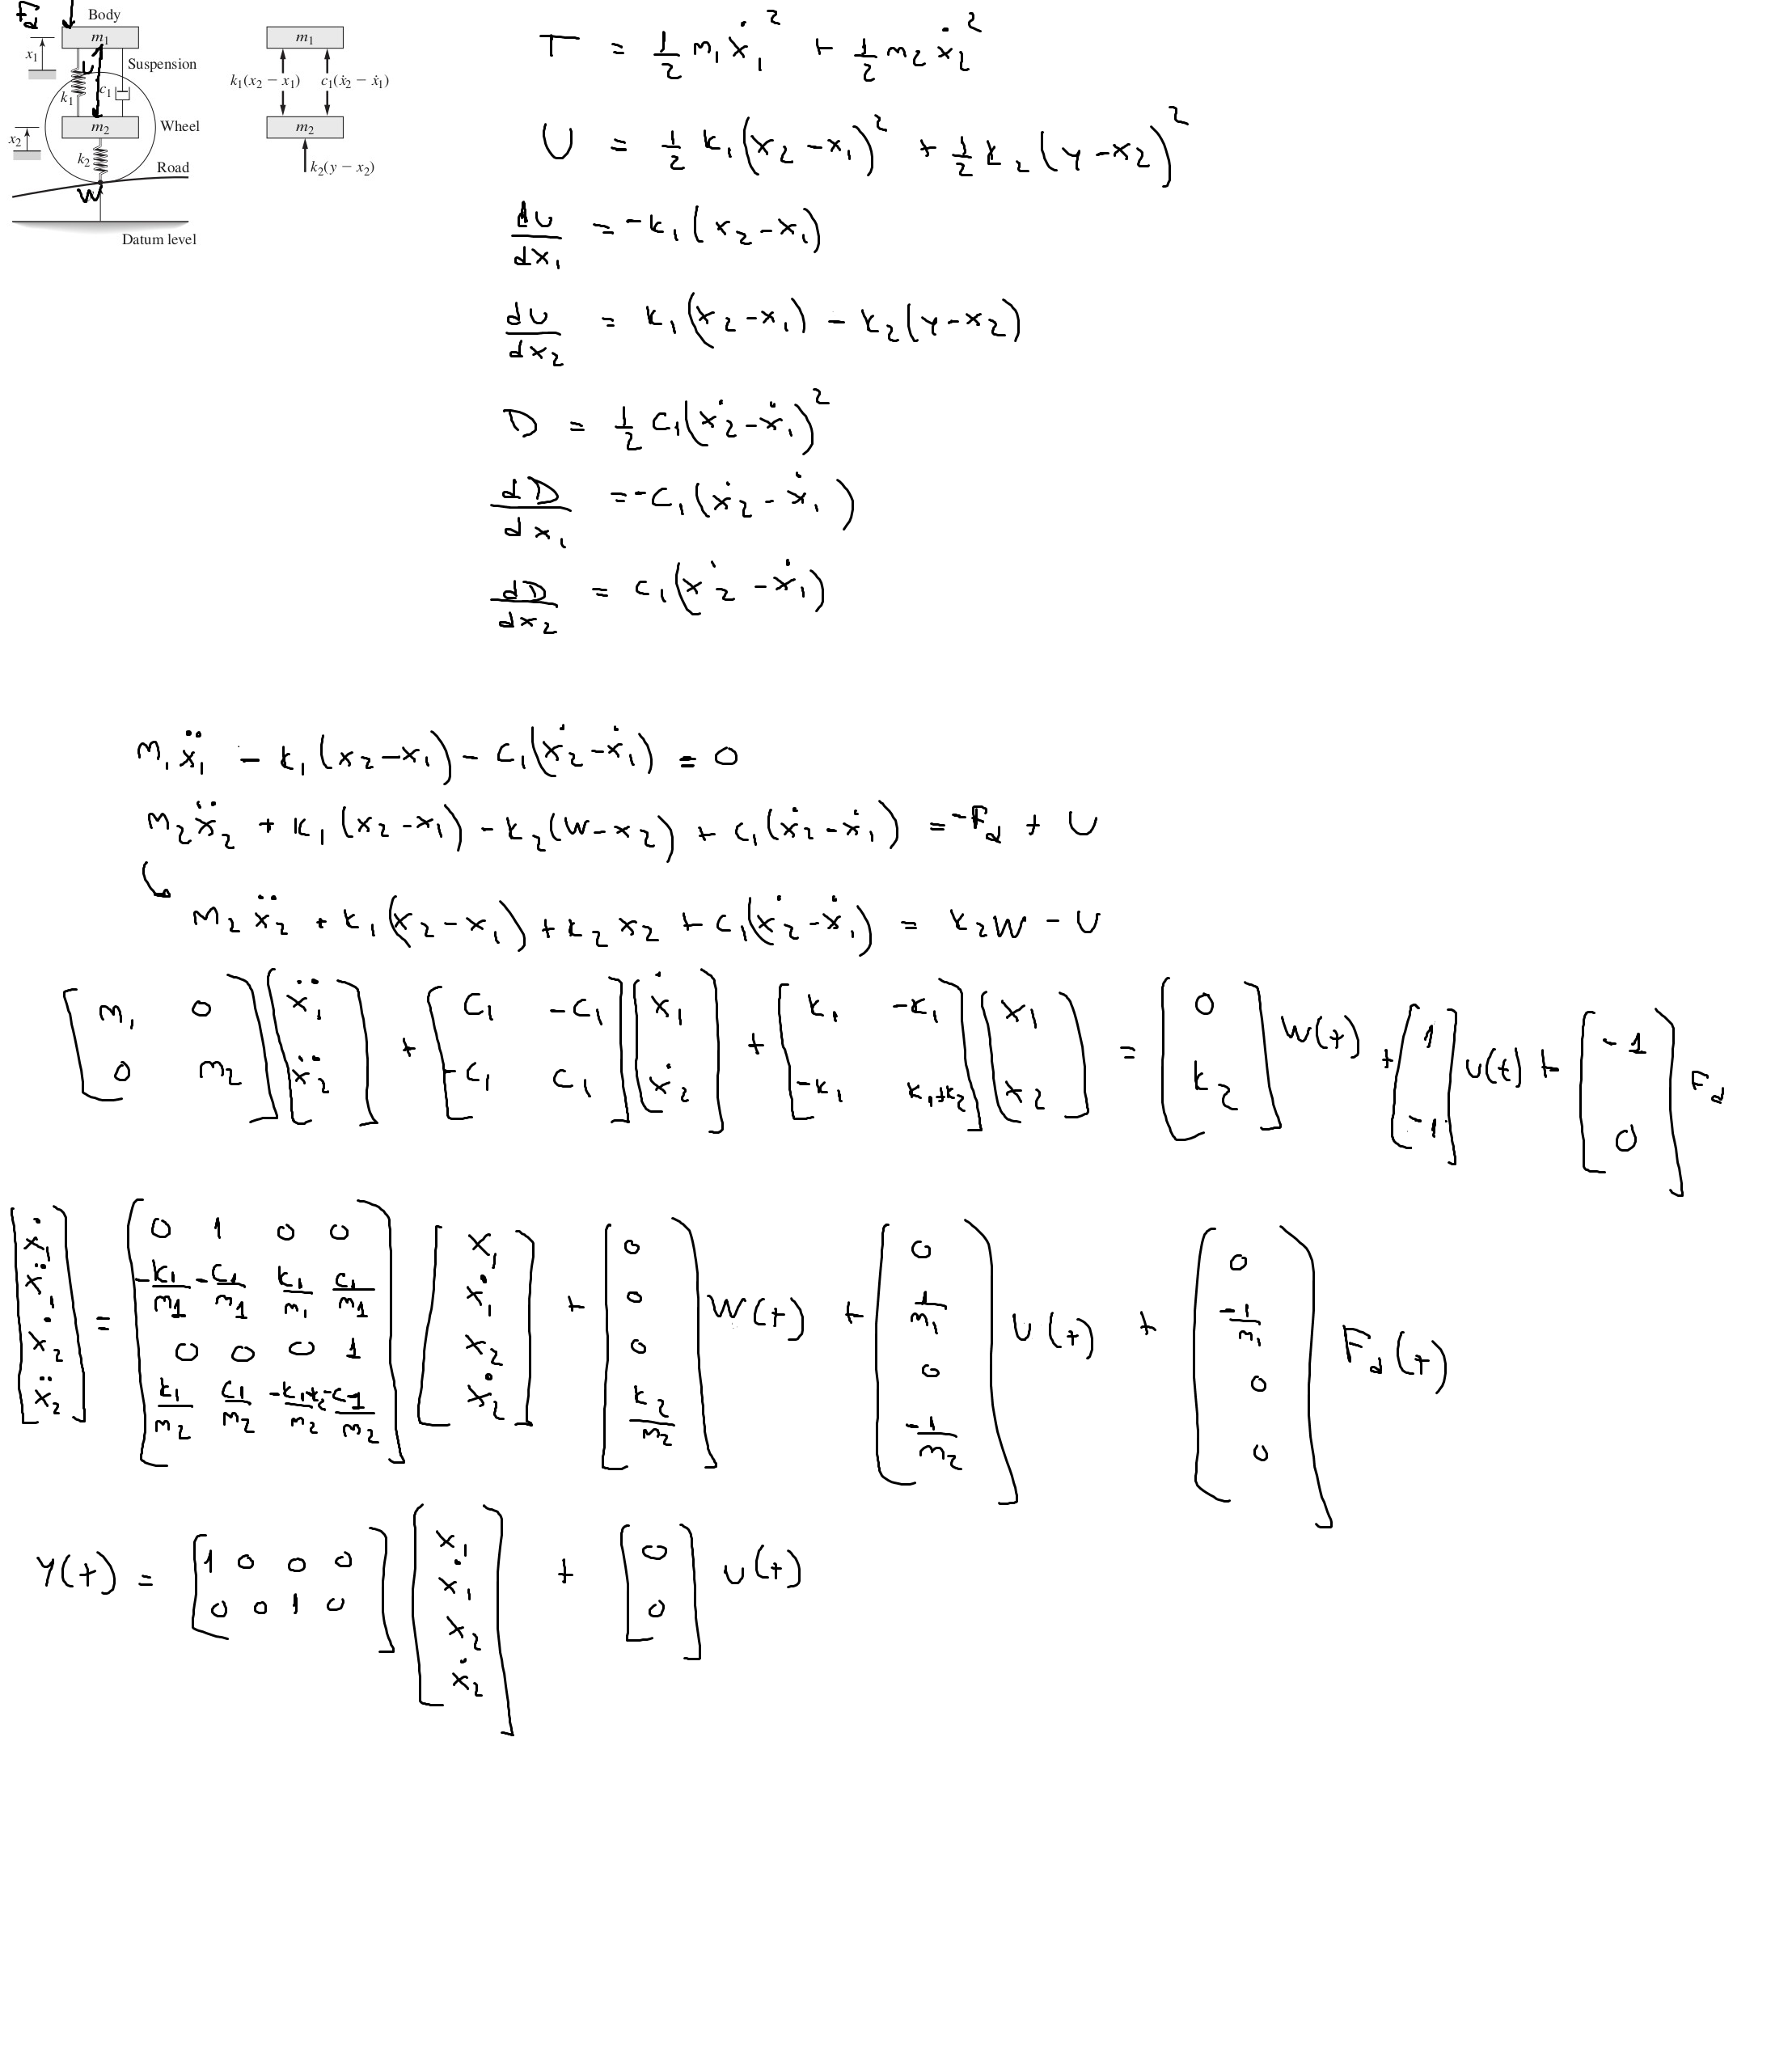 F_d
Body
m₁
x₁
Suspension
k₁
c₁
m₂
Wheel
x₂
k₂
Road
W
Datum level
m₁
k₁(x₂ − x₁) c₁(ẋ₂ − ẋ₁)
m₂
k₂(y − x₂)
T = 1/2 m₁ẋ₁² + 1/2 m₂ẋ₂²
U = 1/2 k₁(x₂ − x₁)² + 1/2 k₂(y − x₂)²
dU/dx₁ = −k₁(x₂ − x₁)
dU/dx₂ = k₁(x₂ − x₁) − k₂(y − x₂)
D = 1/2 c₁(ẋ₂ − ẋ₁)²
dD/dx₁ = −c₁(ẋ₂ − ẋ₁)
dD/dx₂ = c₁(ẋ₂ − ẋ₁)
m₁ẍ₁ − k₁(x₂ − x₁) − c₁(ẋ₂ − ẋ₁) = 0
m₂ẍ₂ + k₁(x₂ − x₁) − k₂(W − x₂) + c₁(ẋ₂ − ẋ₁) = −F_d + U
m₂ẍ₂ + k₁(x₂ − x₁) + k₂x₂ + c₁(ẋ₂ − ẋ₁) = k₂W − U
[m₁ 0; 0 m₂][ẍ₁; ẍ₂] + [c₁ −c₁; −c₁ c₁][ẋ₁; ẋ₂] + [k₁ −k₁; −k₁ k₁+k₂][x₁; x₂] = [0; k₂] W(t) + [1; −1] u(t) + [−1; 0] F_d
[ẋ₁; ẍ₁; ẋ₂; ẍ₂] = [0 1 0 0; −k₁/m₁ −c₁/m₁ k₁/m₁ c₁/m₁; 0 0 0 1; k₁/m₂ c₁/m₂ −k₁+k₂/m₂ −c₁/m₂][x₁; ẋ₁; x₂; ẋ₂] + [0; 0; 0; k₂/m₂] W(t) + [0; 1/m₁; 0; −1/m₂] U(t) + [0; −1/m₁; 0; 0] F_d(t)
Y(t) = [1 0 0 0; 0 0 1 0][x₁; ẋ₁; x₂; ẋ₂] + [0; 0] u(t)